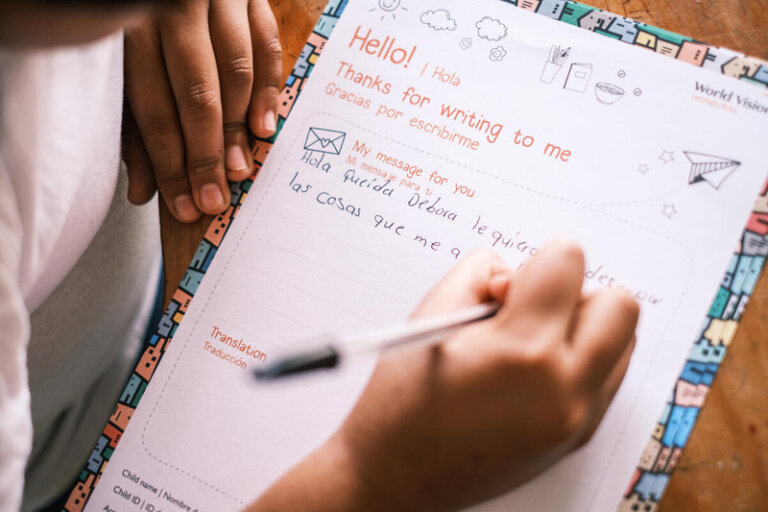 Hello! | Hola
World Vision
HONDURAS
Thanks for writing to me
Gracias por escribirme
My message for you
Mi mensaje para ti
Hola Querida Debora le quiero
las cosas que me a
Translation
Traducción
Child name | Nombre d
Child ID | ID d